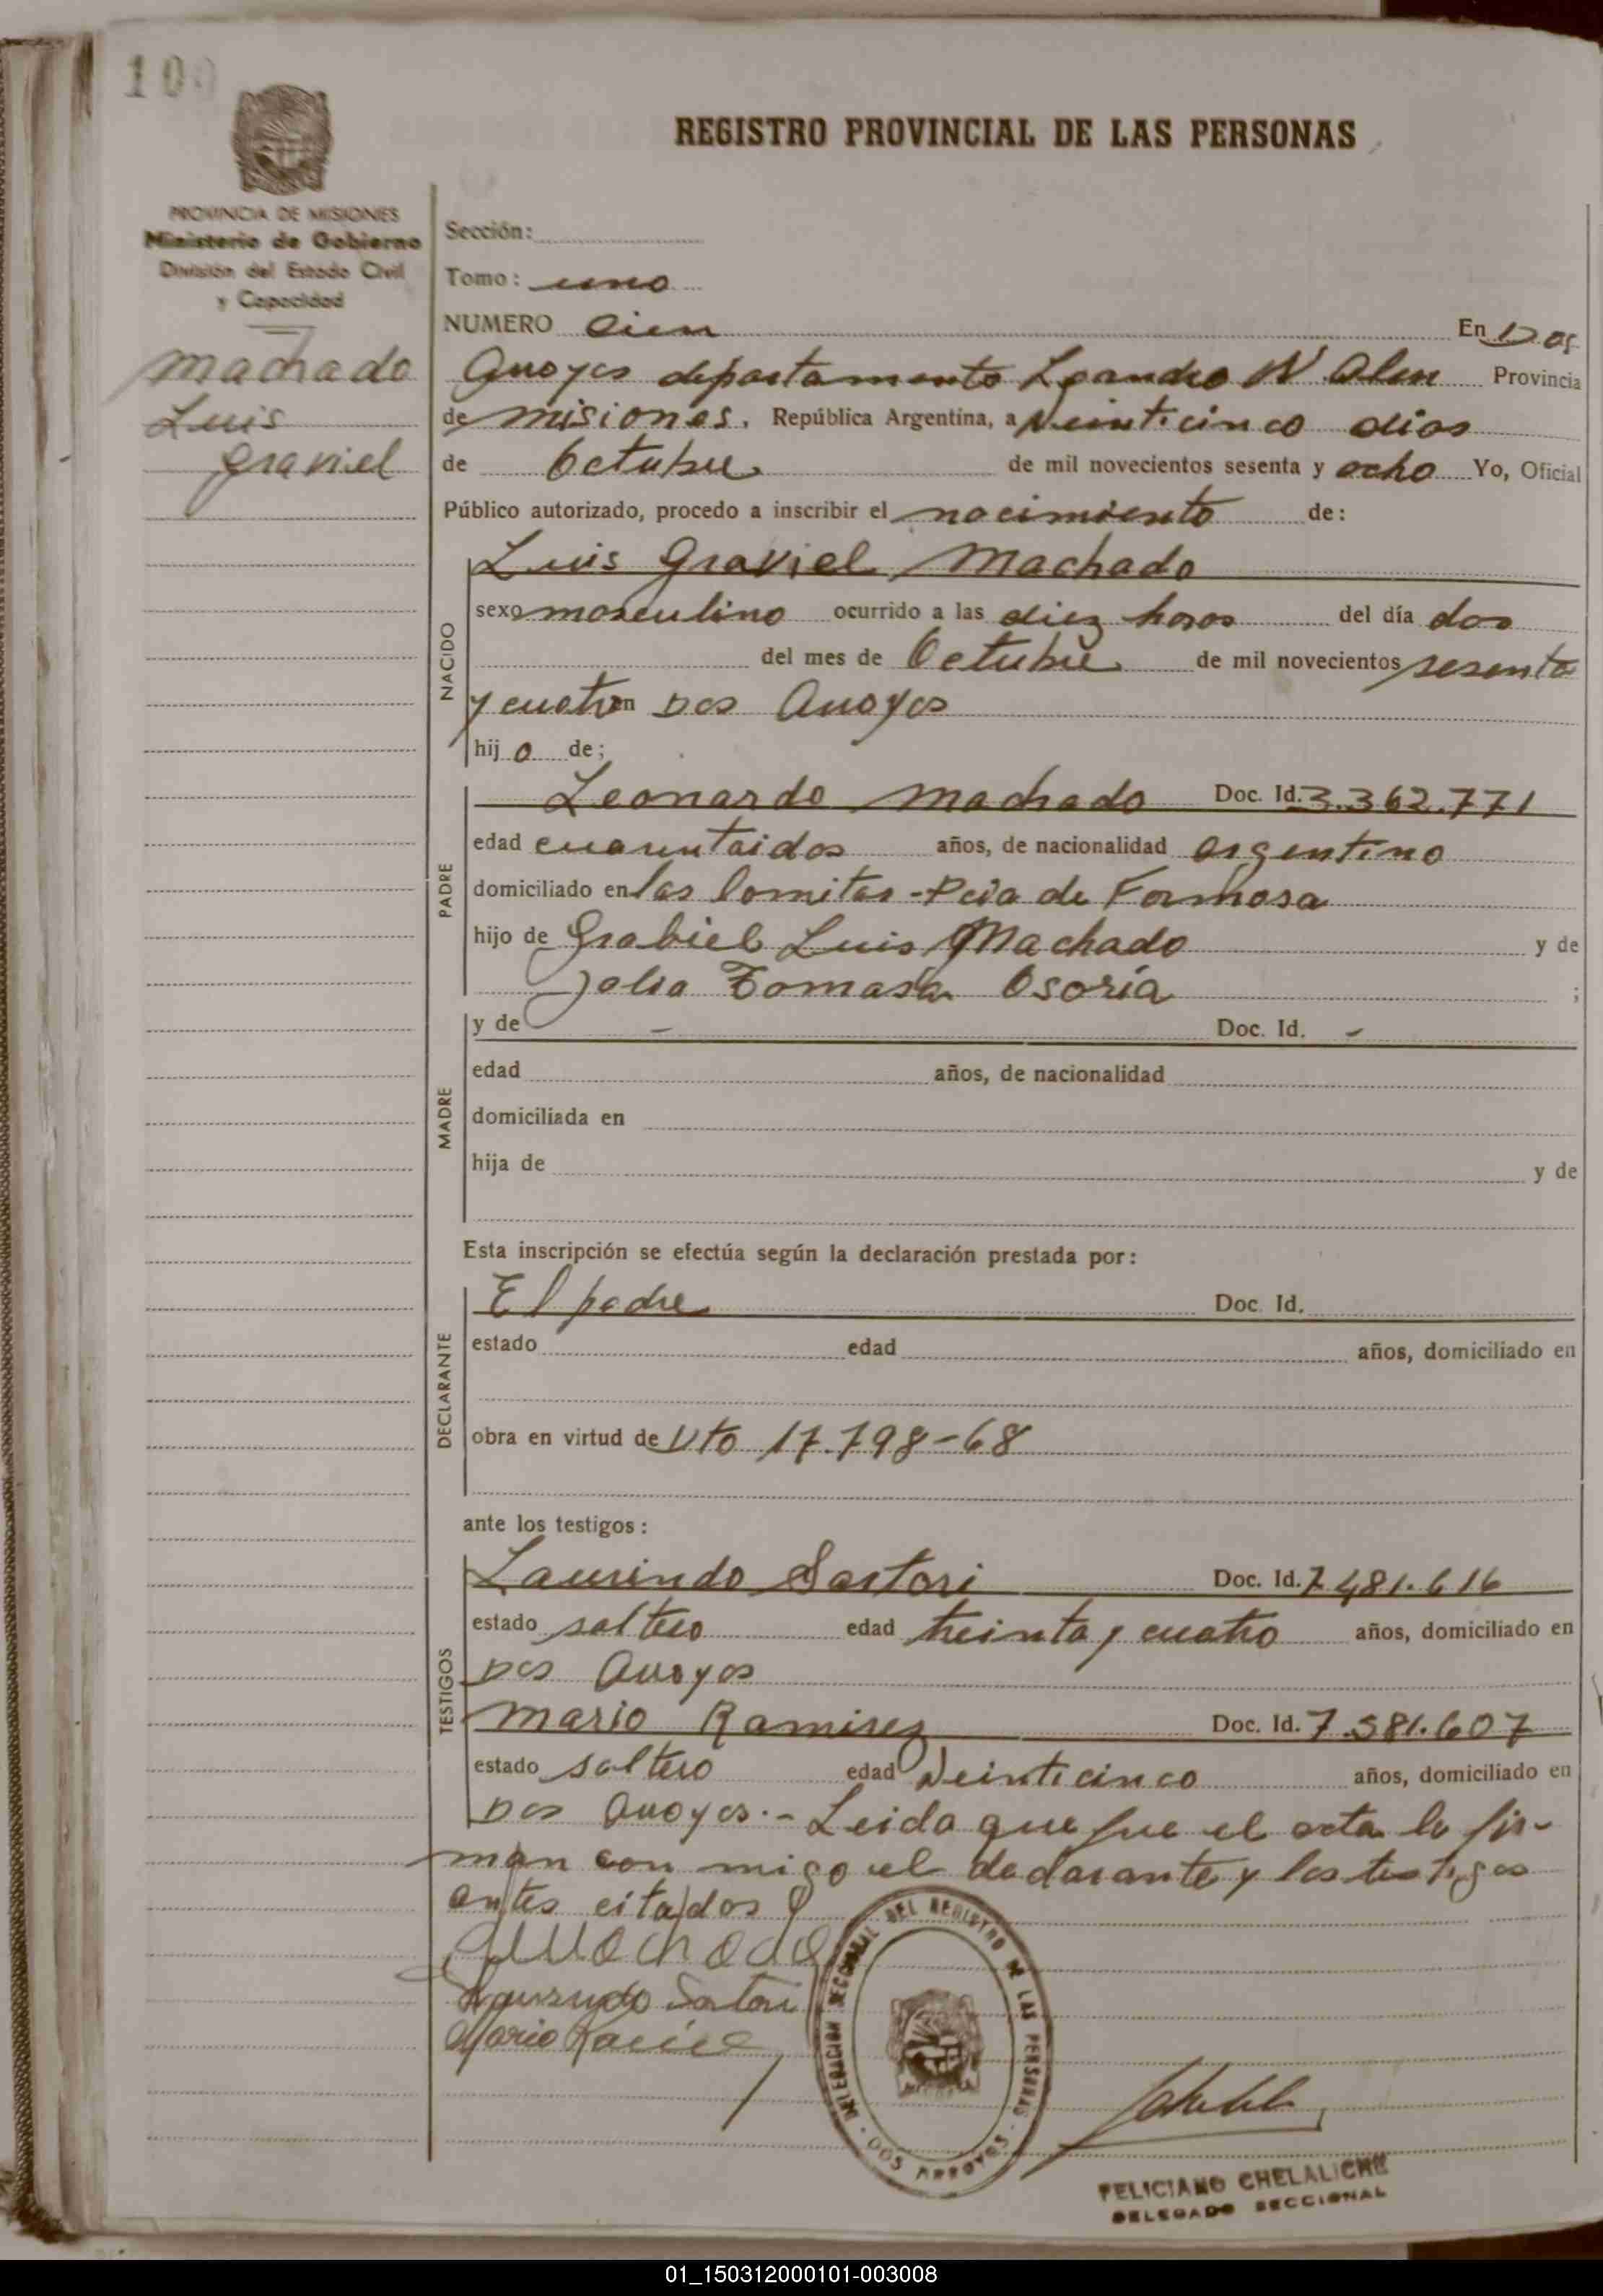 100
REGISTRO PROVINCIAL DE LAS PERSONAS
PROVINCIA DE MISIONES
Ministerio de Gobierno
División del Estado Civil
y Capacidad
Machado
Luis
Graviel
Sección:
Tomo: uno
NUMERO Cien En Dos
Arroyos departamento Leandro N Alem Provincia
de misiones, República Argentina, a Veinticinco dias
de Octubre de mil novecientos sesenta y ocho Yo, Oficial
Público autorizado, procedo a inscribir el nacimiento de:
NACIDO
Luis Graviel Machado
sexo masculino ocurrido a las diez horas del día dos
del mes de Octubre de mil novecientos sesenta
y cuatro en Dos Arroyos
hijo de;
PADRE
Leonardo Machado Doc. Id. 3.362.771
edad cuarentaidos años, de nacionalidad argentino
domiciliado en las lomitas - Pcia de Formosa
hijo de Grabiel Luis Machado y de
Tomasa Osoria ;
MADRE
y de - Doc. Id. -
edad años, de nacionalidad
domiciliada en
hija de y de
Esta inscripción se efectúa según la declaración prestada por:
DECLARANTE
El padre Doc. Id.
estado edad años, domiciliado en
obra en virtud de Dto 17.798-68
ante los testigos:
TESTIGOS
Laurindo Sartori Doc. Id. 7.481.616
estado soltero edad treinta y cuatro años, domiciliado en
Dos Arroyos
Mario Ramirez Doc. Id. 7.581.607
estado soltero edad Veinticinco años, domiciliado en
Dos Arroyos.- Leida que fue el acta la fir-
man con migo el declarante y los testigos
antes citados
Machado
Laurindo Sartori
Mario
DELEGACION SECCIONAL DEL REGISTRO DE LAS PERSONAS
DOS ARROYOS
FELICIANO CHELALICHE
DELEGADO SECCIONAL
01_150312000101-003008